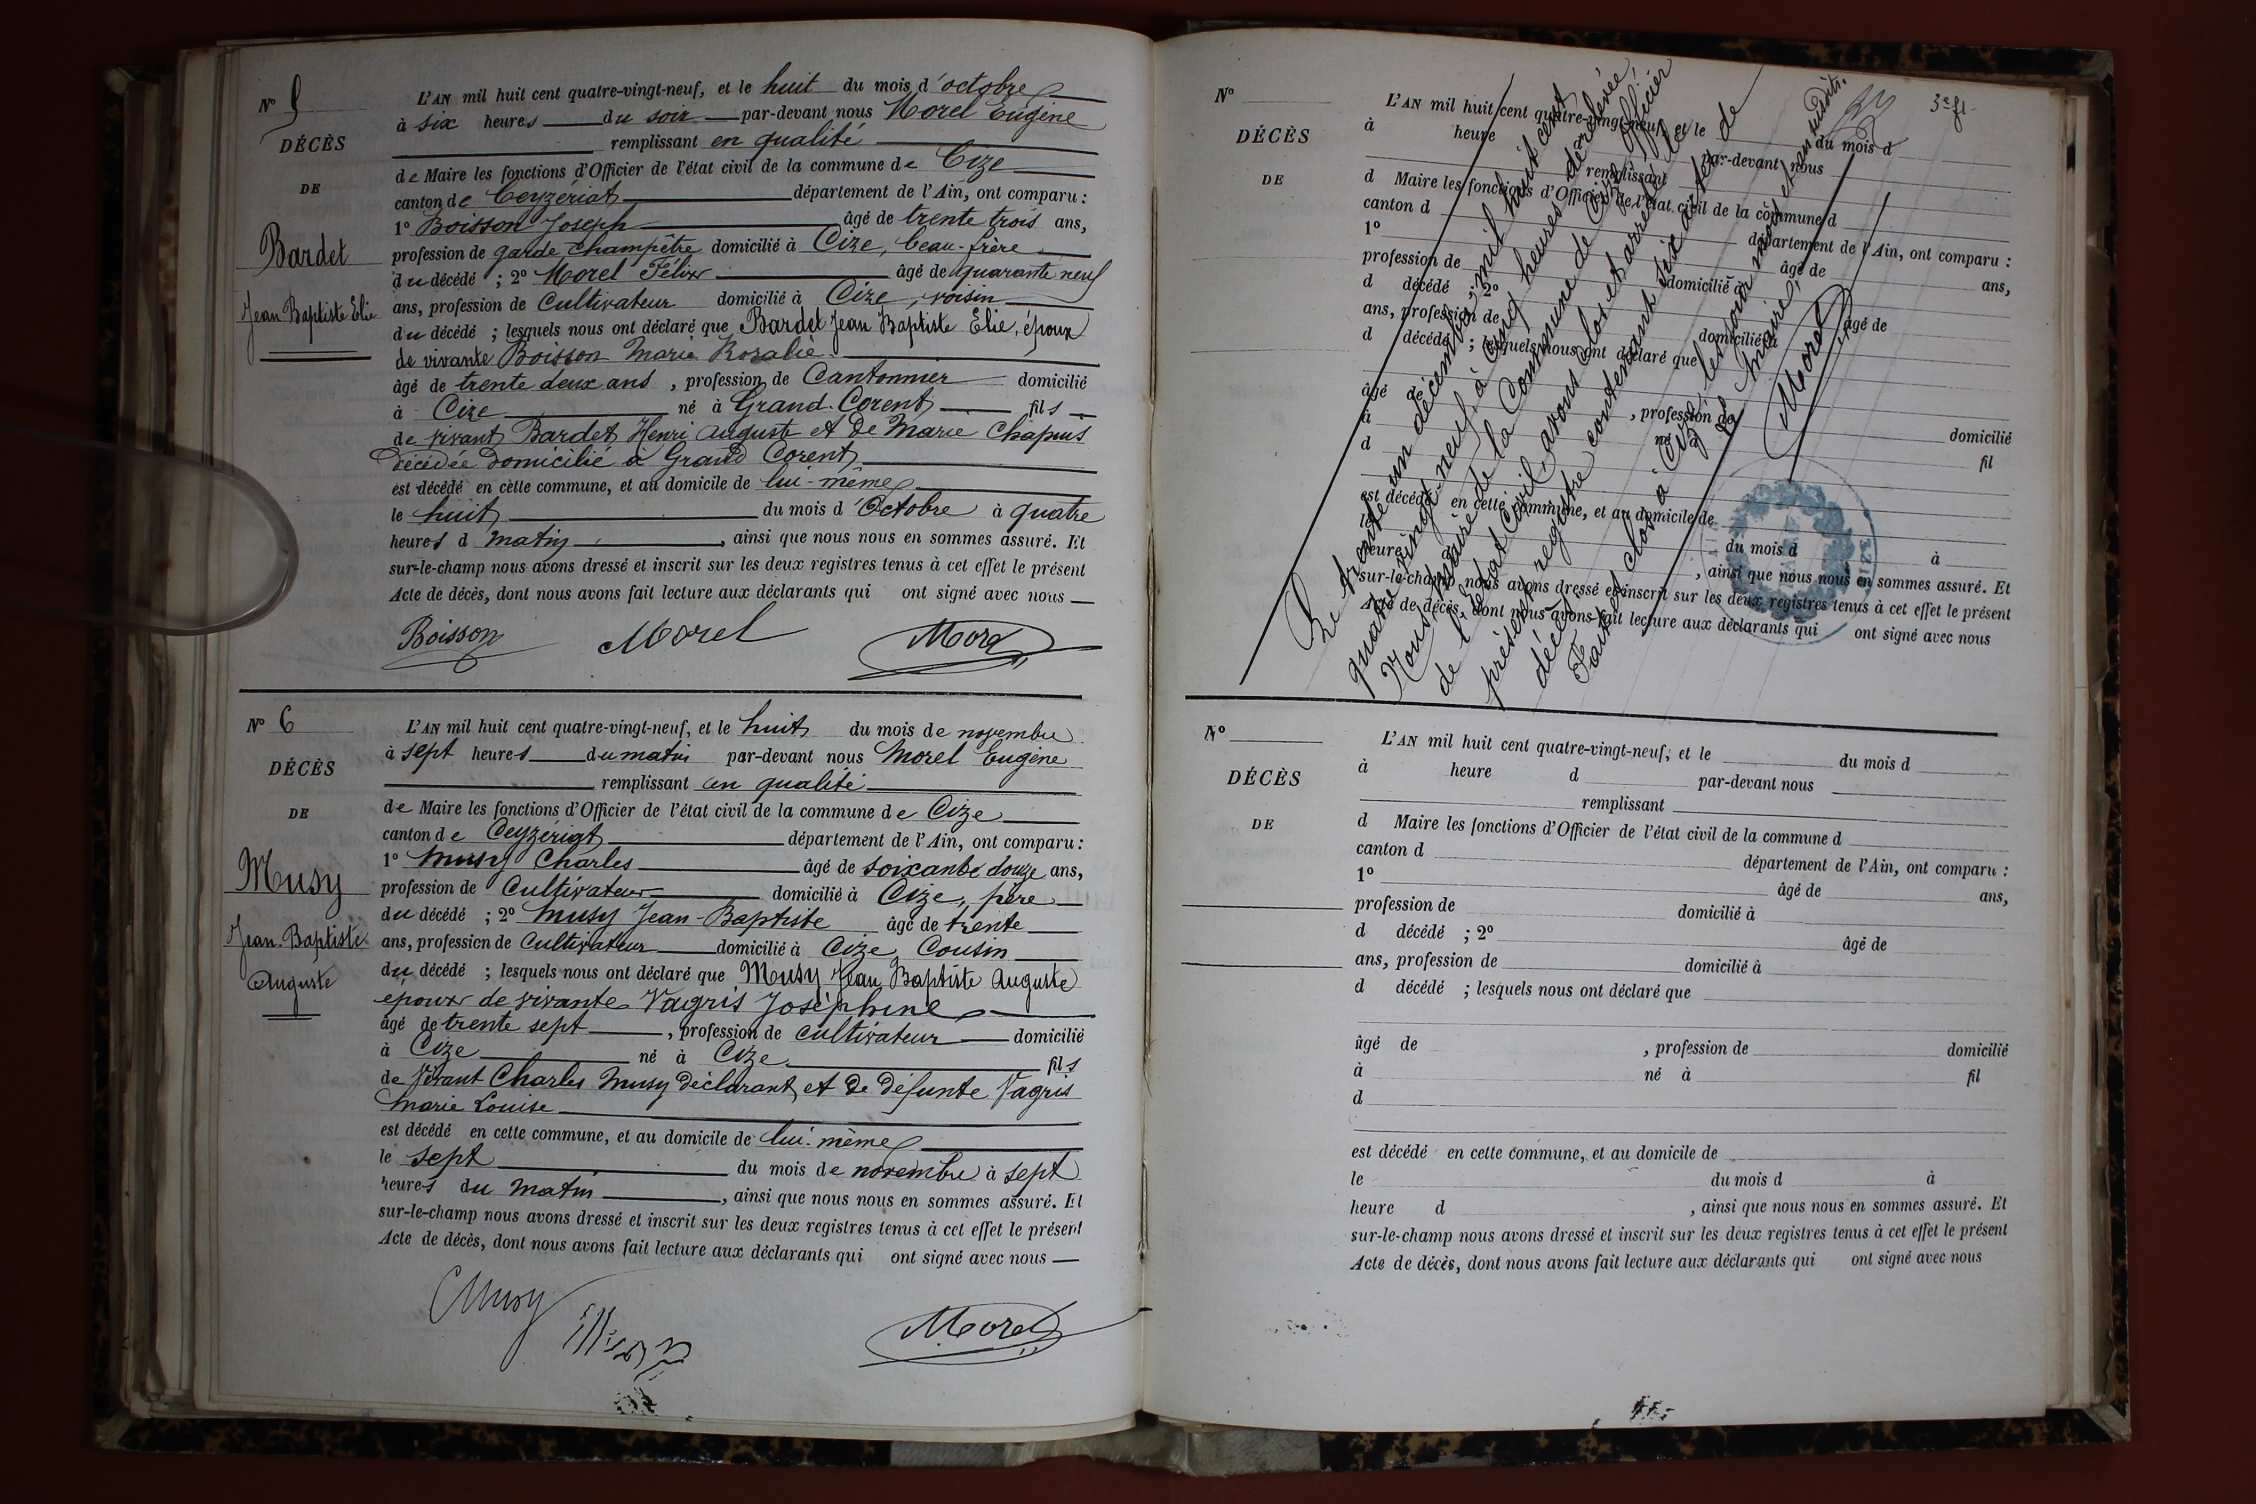 N° 5
DÉCÈS
DE
Bardet
Jean Baptiste Elie
L'AN mil huit cent quatre-vingt-neuf, et le huit du mois d'octobre
à six heures du soir par-devant nous Morel Eugène
remplissant en qualité
de Maire les fonctions d'Officier de l'état civil de la commune de Cize
canton de Ceyzériat département de l'Ain, ont comparu :
1° Boisson Joseph âgé de trente trois ans,
profession de garde champêtre domicilié à Cize, beau-frère
du décédé ; 2° Morel Félix âgé de quarante neuf
ans, profession de Cultivateur domicilié à Cize, voisin
du décédé ; lesquels nous ont déclaré que Bardet Jean Baptiste Elie, époux
de vivante Boisson Marie Rozalie
âgé de trente deux ans, profession de Cantonnier domicilié
à Cize né à Grand-Corent fils
de vivant Bardet Henri Auguste et de Marie Chapuis
décédée domicilié à Grand Corent
est décédé en cette commune, et au domicile de lui-même
le huit du mois d'Octobre à quatre
heures d matin, ainsi que nous nous en sommes assuré. Et
sur-le-champ nous avons dressé et inscrit sur les deux registres tenus à cet effet le présent
Acte de décès, dont nous avons fait lecture aux déclarants qui ont signé avec nous
Boisson Morel Morel
N° 6
DÉCÈS
DE
Musy
Jean-Baptiste
Auguste
L'AN mil huit cent quatre-vingt-neuf, et le huit du mois de novembre
à sept heures du matin par-devant nous Morel Eugène
remplissant en qualité
de Maire les fonctions d'Officier de l'état civil de la commune de Cize
canton de Ceyzériat département de l'Ain, ont comparu :
1° Musy Charles âgé de soixante douze ans,
profession de Cultivateur domicilié à Cize, père
du décédé ; 2° Musy Jean-Baptiste âgé de trente
ans, profession de Cultivateur domicilié à Cize Cousin
du décédé ; lesquels nous ont déclaré que Musy Jean Baptiste Auguste
époux de vivante Vagris Joséphine
âgé de trente sept, profession de cultivateur domicilié
à Cize né à Cize fils
de Vivant Charles Musy déclarant et de défunte Vagris
Marie Louise
est décédé en cette commune, et au domicile de lui-même
le sept du mois de novembre à sept
heures du matin, ainsi que nous nous en sommes assuré. Et
sur-le-champ nous avons dressé et inscrit sur les deux registres tenus à cet effet le présent
Acte de décès, dont nous avons fait lecture aux déclarants qui ont signé avec nous
CMusy Musy Morel
3e fl
N°
DÉCÈS
DE
L'AN mil huit cent quatre-vingt-neuf, et le du mois d
à heure par-devant nous
remplissant
d Maire les fonctions d'Officier de l'état civil de la commune d
canton d département de l'Ain, ont comparu :
1° âgé de ans,
profession de domicilié à
d décédé ; 2° âgé de
ans, profession de domicilié à
d décédé ; lesquels nous ont déclaré que
âgé de , profession de domicilié
à né à fil
d
est décédé en cette commune, et au domicile de
le du mois d à
heure d , ainsi que nous nous en sommes assuré. Et
sur-le-champ nous avons dressé et inscrit sur les deux registres tenus à cet effet le présent
Acte de décès, dont nous avons fait lecture aux déclarants qui ont signé avec nous
Le trente un décembre mil huit cent
quatre vingt-neuf, à cinq heures de relevée
Nous, Maire de la Commune de Cize officier
de l'état Civil, avons clos et arrêté le
présent registre contenant six actes de
décès
Fait et clos à Cize, les jour mois et an susdits.
Le Maire,
Morel
N°
DÉCÈS
DE
L'AN mil huit cent quatre-vingt-neuf, et le du mois d
à heure d par-devant nous
remplissant
d Maire les fonctions d'Officier de l'état civil de la commune d
canton d département de l'Ain, ont comparu :
1° âgé de ans,
profession de domicilié à
d décédé ; 2° âgé de
ans, profession de domicilié à
d décédé ; lesquels nous ont déclaré que
âgé de , profession de domicilié
à né à fil
d
est décédé en cette commune, et au domicile de
le du mois d à
heure d , ainsi que nous nous en sommes assuré. Et
sur-le-champ nous avons dressé et inscrit sur les deux registres tenus à cet effet le présent
Acte de décès, dont nous avons fait lecture aux déclarants qui ont signé avec nous